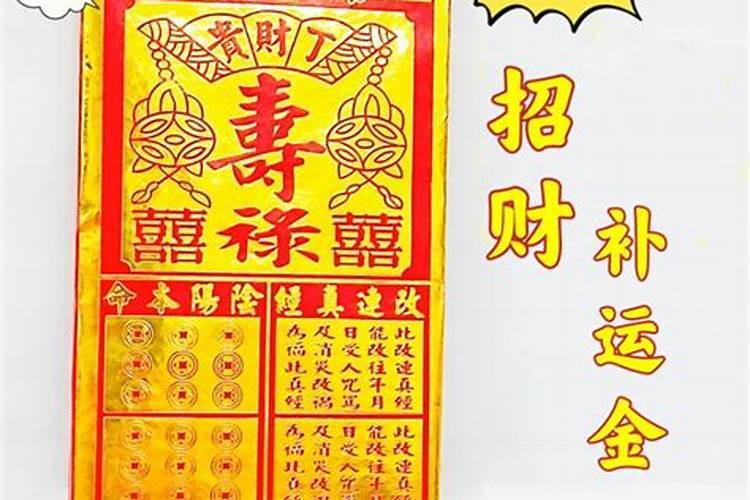 丁財貴
壽
祿
囍 囍
改連真經
陰陽本命
此改連真經
能改往年月
日受人咒罵
及消災改禍
為偹此真經
此改連真經
能改往年月
日受人咒罵
及消災改禍
為偹此真經
招财
补运金